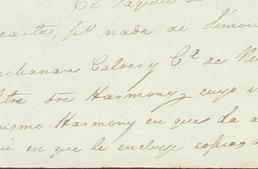 El Paquete
carta, pr nada de Simon
uchanan Calder y Ca de Ne
dre Harmony, cuyo
mismo Harmony en que da a
en que le incluye copias d